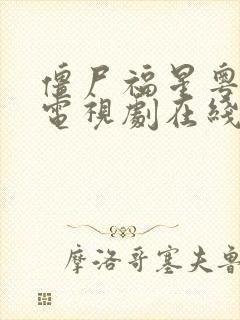 僵尸福星粵
電視劇在綫
摩洛哥塞夫魯